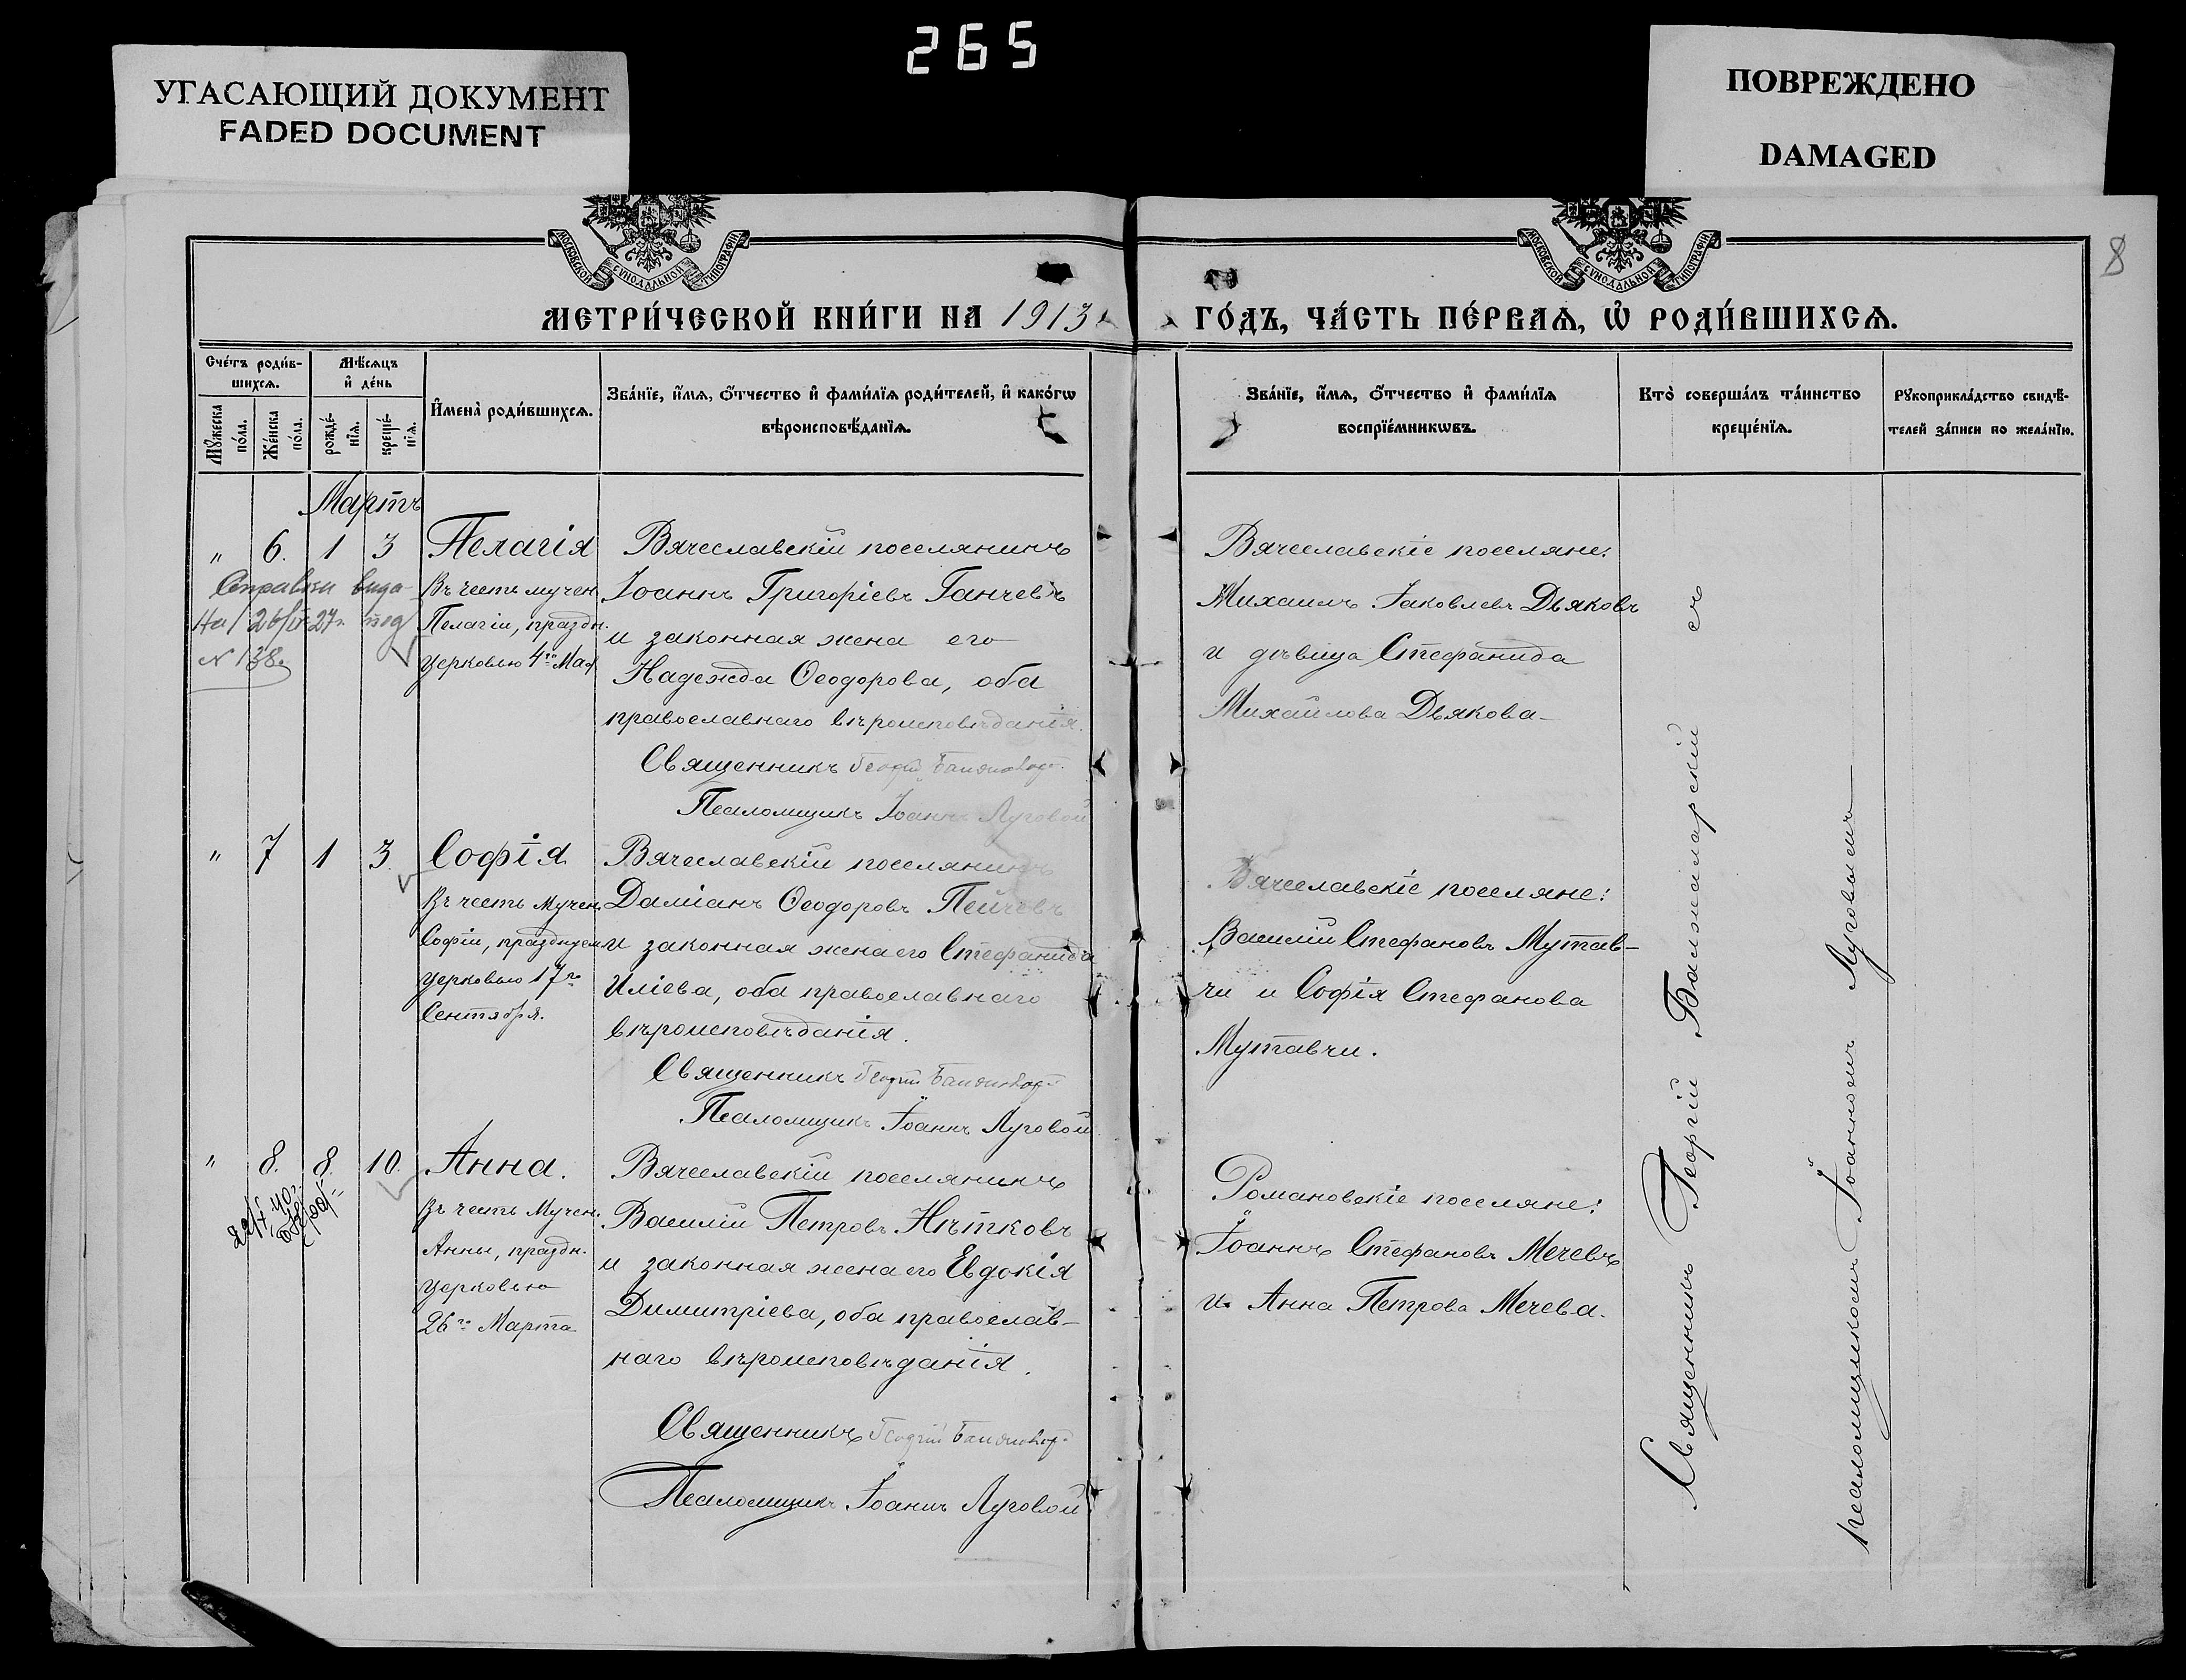 265
УГАСАЮЩИЙ ДОКУМЕНТ
FADED DOCUMENT
ПОВРЕЖДЕНО
DAMAGED
8
МОСКОВСКОЙ СѴНОДАЛЬНОЙ ТИПОГРАФІИ
МОСКОВСКОЙ СѴНОДАЛЬНОЙ ТИПОГРАФІИ
МЕТРИ́ЧЕСКОЙ КНИ́ГИ НА 1913 ГО́ДЪ, ЧА́СТЬ ПЕ́РВАѦ, Ѡ҆ РОДИ́ВШИХСѦ.
Сче́тъ роди́в-
шихсѧ.
Мꙋ́жеска по́ла.
Же́нска по́ла.
Мѣ́сѧцъ
и҆ де́нь
рожде́-нїѧ.
креще́-нїѧ.
И҆мена̀ роди́вшихсѧ.
Зва́нїе, и҆́мѧ, ѻ҆́тчество и҆ фами́лїѧ роди́телей, и҆ како́гѡ
вѣроисповѣ́данїѧ.
Зва́нїе, и҆́мѧ, ѻ҆́тчество и҆ фами́лїѧ
воспрїе́мникѡвъ.
Кто̀ соверша́лъ та́инство
креще́нїѧ.
Рꙋкоприкла́дство свидѣ́-
телей за́писи по жела́нїю.
Мартъ
" 6. 1 3 Пелагія
Въ честь мучен.
Пелагіи, праздн.
церковью 4го Мая
Справки выда
№ 138.
Вячеславскій поселянинъ
Іоаннъ Григоріевъ Ганчевъ
и законная жена его
Надежда Ѳеодорова, оба
православнаго вѣроисповѣданія.
Священникъ Георгій
Псаломщикъ Іоаннъ Луговой
Вячеславскіе поселяне:
Михаилъ Іаковлевъ Дьяковъ
и дѣвица Стефанида
Михайлова Дьякова
" 7 1 3 Софія
Въ честь мучен.
Софіи, празднуем.
церковью 17го
Сентября.
Вячеславскій поселянинъ
Даміанъ Ѳеодоровъ Пейчевъ
и законная жена его Стефанида
Иліева, оба православнаго
вѣроисповѣданія.
Священникъ Георгій
Псаломщикъ Іоаннъ Луговой
Вячеславскіе поселяне:
Василій Стефановъ Мутав-
чи и Софія Стефанова
Мутавчи.
" 8. 8. 10. Анна.
Въ честь Мучен.
Анны, праздн.
церковью
26го Марта
Вячеславскій поселянинъ
Василій Петровъ Нѣтковъ
и законная жена его Евдокія
Димитріева, оба православ-
наго вѣроисповѣданія.
Священникъ Георгій
Псаломщикъ Іоаннъ Луговой
Романовскіе поселяне:
Іоаннъ Стефановъ Мечевъ
и Анна Петрова Мечева.
Священникъ Георгій съ
псаломщикомъ Іоанномъ Луговымъ